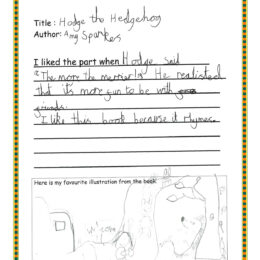 Title : Hodge the Hedgehog
Author: Amy Sparkes
I liked the part when Hodge said
"The more the merrier". He realised
that it's more fun to be with
friends.
I like this book because it rhymes.
Here is my favourite illustration from the book: